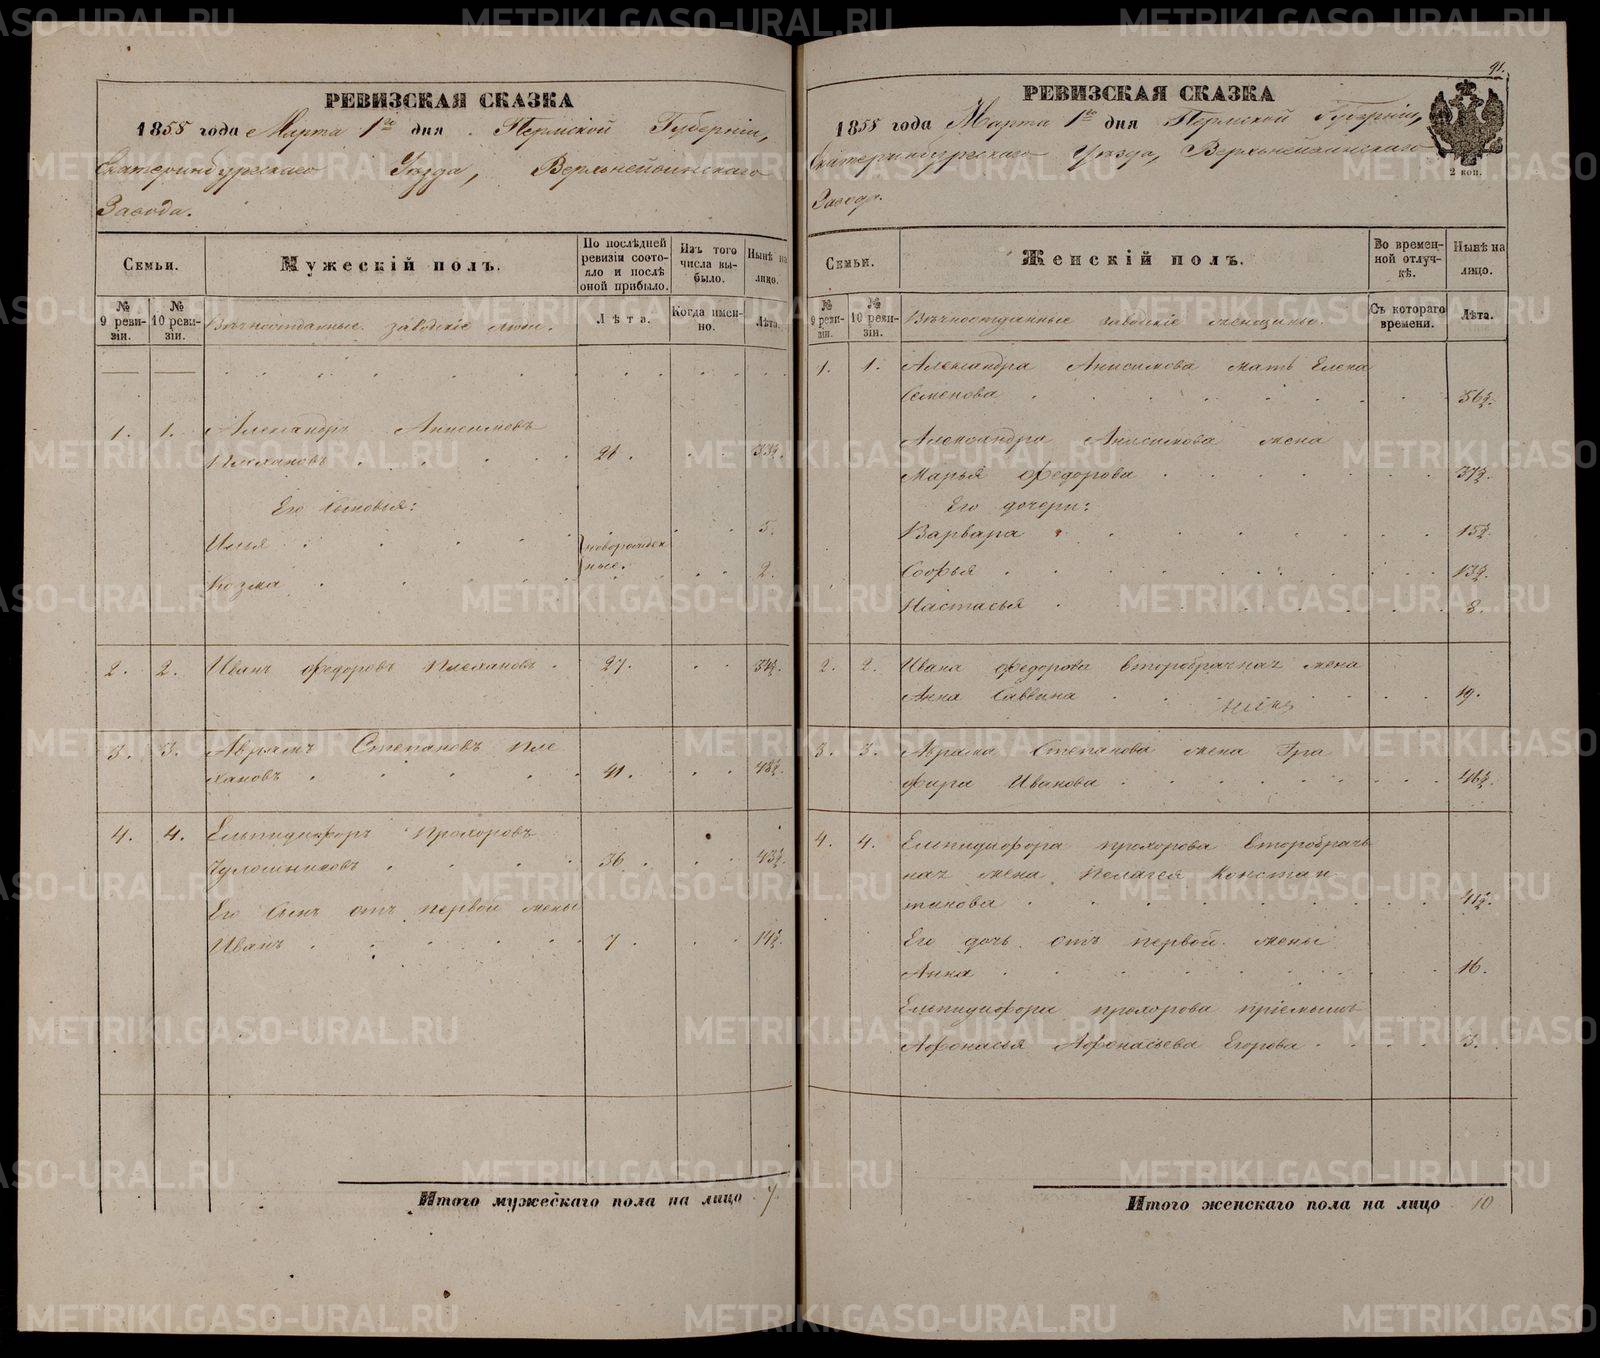 РЕВИЗСКАЯ СКАЗКА
1858 года Марта 1го дня Пермской Губерніи,
Екатеринбургскаго Уезда, Верхнейвинскаго
Завода.
Семьи.
Мужескій полъ.
По последней ревизіи состояло и после оной прибыло.
Изъ того числа выбыло.
Ныне на лицо.
№ 9 ревизіи.
№ 10 ревизіи.
Вечноотданные заводскіе люди.
Лѣта.
Когда именно.
Лѣта.
1. 1. Александръ Анисимовъ
Плехановъ 21.
Его Сыновья:
Илья 5.
новорожденные.
Козма 2.
2. 2. Иванъ Федоровъ Плехановъ 27.
3. 3. Абрамъ Степановъ Пле
хановъ 41.
4. 4. Елпидифоръ Прохоровъ
Чулошниковъ 36.
Его Сынъ отъ первой жены
Иванъ 7. 14½.
Итого мужескаго пола на лицо 7.
91.
РЕВИЗСКАЯ СКАЗКА
1858 года Марта 1го дня Пермской Губерніи,
Екатеринбургскаго Уезда, Верхнейвинскаго
Завода.
2 коп.
Семьи.
Женскій полъ.
Во временной отлучкѣ.
Нынѣ на лицо.
№ 9 ревизіи.
№ 10 ревизіи.
Вечноотданные заводскіе женщины.
Съ котораго времени.
Лѣта.
1. 1. Александра Анисимова мать Елена
Семенова 56½.
Александра Анисимова жена
Марья Федорова 37½.
Его дочери:
Варвара 15½.
Софья 13½.
Настасья 8.
2. 2. Ивана Федорова второбрачная жена
Анна Саввина 19.
3. 3. Абрама Степанова жена Гла
фира Иванова 46½.
4. 4. Елпидифора Прохорова второбрач
ная жена Пелагея Констан
тинова 41½.
Его дочь отъ первой жены
Анна 16.
Елпидифора Прохорова пріемышъ
Афонасья Афонасьева Егорова 3.
Итого женскаго пола на лицо 10
METRIKI.GASO-URAL.RU